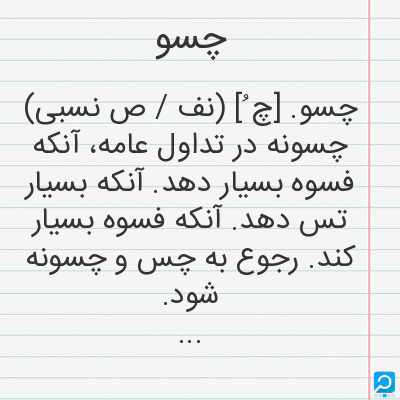 چسو
چسو. [چ ُ] (نف / ص نسبی)
چسونه در تداول عامه، آنکه
فسوه بسیار دهد. آنکه بسیار
تس دهد. آنکه فسوه بسیار
کند. رجوع به چس و چسونه
شود.
...